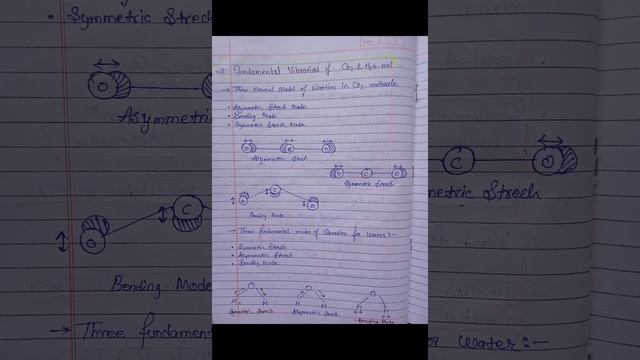 • Symmetric Strech
Asymmetri
Bending Mode
→ Three fundame
# Fundamental Vibration of CO2 & H2O mol
→ Three Normal Model of Vibration in CO2 molecule
• Asymmetric Strech Mode
• Bending Mode
• Symmetric Strech Mode
O C O
Asymmetric Strech
O C O
Symmetric Strech
O C O
Bending Mode
→ Three fundamental modes of Vibration for Water:-
• Symmetric Strech
• Asymmetric Strech
• Bending Mode
O O O
H H H H H H
Symmetric Strech Asymmetric Strech Bending Mode
C O
mmetric Strech
or Water:-